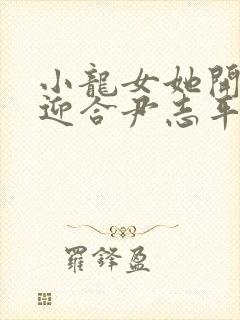 小龍女她開
迎合尹志平
羅鋒盈